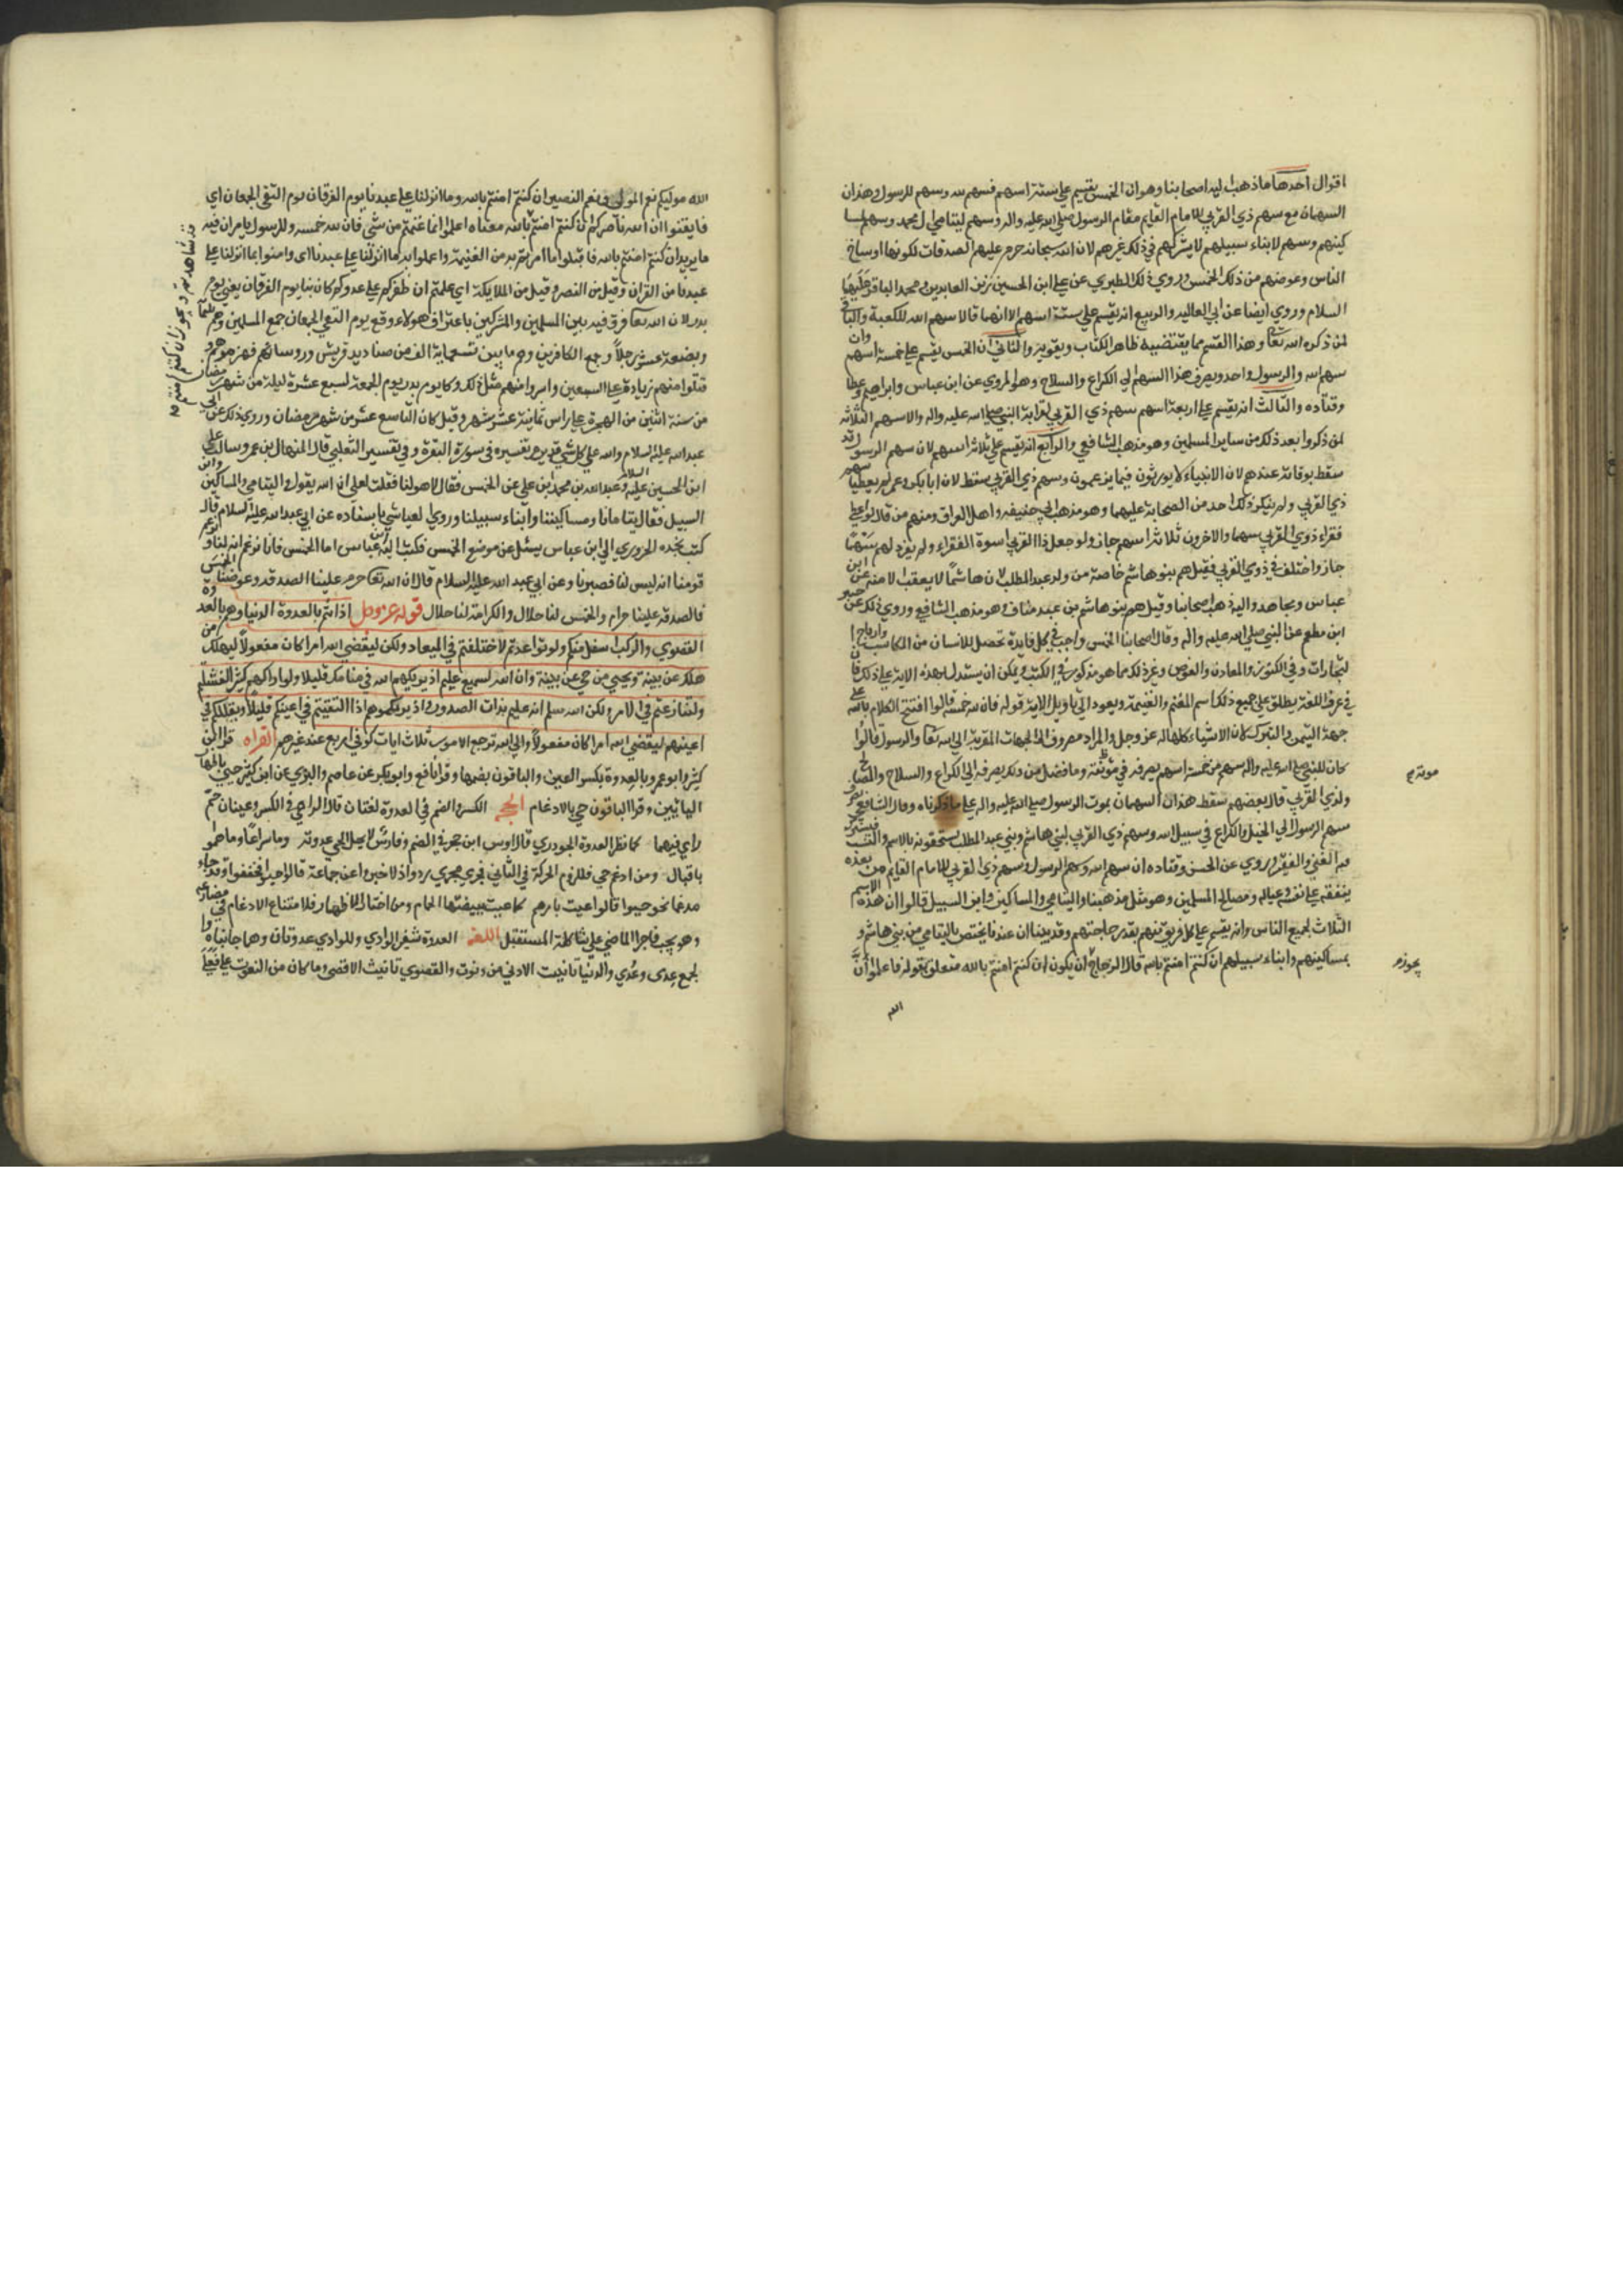 اقوال احدها ما ذهب اليه اصحابنا وهو ان الخمس يقسم على ستة اسهم فسهم لله وسهم للرسول وهذان
السهمان مع سهم ذي القربي للامام القايم مقام الرسول صلي الله عليه واله وسهم ليتامي ال محمد وسهم لمسا
كينهم وسهم لابناء سبيلهم لا يشركهم في ذلك غيرهم لان الله سبحانه حرم عليهم الصدقات لكونها اوساخ
الناس وعوضهم من ذلك الخمس وروي ذلك الطبري عن علي ابن الحسين زين العابدين ومحمد الباقر عليهما
السلام وروي ايضا عن ابي العاليه والربيع انه يقسم علي ستة اسهم الا انهما قالا سهم الله للكعبة والباقي
لمن ذكره الله تعا وهذا القسم مما يقتضيه ظاهر الكتاب ويقويه والثاني ان الخمس يقسم علي خمسة اسهم وان
سهم الله والرسول واحد ويصرف هذا السهم الي الكراع والسلاح وهو المروي عن ابن عباس وابراهيم وعطا
وقتاده والثالث انه يقسم علي اربعة اسهم سهم ذي القربي لقرابة النبي صلي الله عليه واله والاسهم الثلاثة
لمن ذكروا بعد ذلك من ساير المسلمين وهو مذهب الشافعي والرابع انه يقسم علي ثلاثة اسهم لان سهم الرسول قد
سقط بوفاته عندهم لان الانبياء لا يورثون فيما يزعمون وسهم ذي القربي سقط لان ابا بكر وعمر لم يعطيا سهم
ذي القربي ولم ينكر ذلك احد من الصحابة عليهما وهو مذهب ابي حنيفه واهل العراق ومنهم من قال لو اعطي
فقراء ذوي القربي سهما والاخرون ثلاثة اسهم جاز ولو جعل ذا القربي اسوة الفقراء ولم يفرد لهم سهما
جاز واختلف في ذوي القربي فقيل هم بنو هاشم خاصة من ولد عبد المطلب لان هاشما لم يعقب الا منه عن ابن
عباس ومجاهد واليه ذهب اصحابنا وقيل هم بنو هاشم بن عبد مناف وهو مذهب الشافعي وروي ذلك عن جبير
ابن مطعم عن النبي صلي الله عليه واله وقال اصحابنا الخمس واجب في كل فايدة تحصل للانسان من المكاسب وارباح ا
لتجارات وفي الكنوز والمعادن والغوص وغير ذلك مما هو مذكور في الكتب ويمكن ان يستدل بهذه الاية علي ذلك فان
في عرف اللغة يطلق علي جميع ذلك اسم المغنم والغنيمة ويعود الي تاويل الاية قوله فان لله خمسه قالوا افتتح الكلام بالله علي
جهة التيمن والتبرك لان الاشياء كلها له عز وجل والمراد مصروف الي الجهات المقربة الي الله تعا والرسول قالوا
كان للنبي صلي الله عليه واله سهم من خمسة اسهم يصرفه في مؤنته وما فضل من ذلك يصرفه الي الكراع والسلاح والمصالح
ولذي القربي قال بعضهم سقط هذان السهمان بموت الرسول صلي الله عليه واله علي ما ذكرناه وقال الشافعي يصرف
سهم الرسول الي الخيل والكراع في سبيل الله وسهم ذي القربي لبني هاشم وبني عبد المطلب يستحقونه بالاسم والنسب فيشترك
فيه الغني والفقير وروي عن الحسن وقتاده ان سهم الله وسهم الرسول وسهم ذي القربي للامام القايم من بعده
ينفقه علي نفسه وعياله ومصالح المسلمين وهو مثل مذهبنا واليتامي والمساكين وابن السبيل قالوا ان هذه الاسهم
الثلاث لجميع الناس وانه يقسم علي كل فريق منهم بقدر حاجتهم وقد بينا ان عندنا يختص باليتامي من بني هاشم و
بمساكينهم وابناء سبيلهم ان كنتم امنتم بالله قال الزجاج ان يكون ان كنتم امنتم بالله متعلق بقوله فاعلموا ان
الله
مونته
يجوز
الله موليكم نعم المولى ونعم النصير ان كنتم امنتم بالله وما انزلنا علي عبدنا يوم الفرقان يوم التقي الجمعان اي
فايقنوا ان الله ناصركم ان كنتم امنتم بالله معناه اعلموا انما غنمتم من شئ فان لله خمسه وللرسول يامران فيه
ما يريدان كنتم امنتم بالله فاقبلوا ما امرتم به من الغنيمة واعملوا به وما انزلنا علي عبدنا اي وامنوا بما انزلنا علي
عبدنا من القران وقيل من النصر وقيل من الملايكة اي علمتم ان ظفركم علي عدوكم كان بنا يوم الفرقان يعني يوم
بدر لان الله تعا فرق فيه بين المسلمين والمشركين باعزاز هولاء وقمع يوم التقي الجمعان جمع المسلمين وهم ثلثماية
وبضعة عشر رجلا وجمع الكافرين وهم ما بين تسعماية الي الف من صناديد قريش وروسائهم فهزموهم و
قتلوا منهم زيادة علي السبعين واسروا منهم مثل ذلك وكان يوم بدر يوم الجمعة لسبع عشرة ليلة من شهر رمضان
من سنة اثنتين من الهجرة علي راس ثمانية عشر شهر وقيل كان التاسع عشر من شهر رمضان وروي ذلك عن ابي
عبد الله عليه السلام والله علي كل شئ قدير مر تفسيره في سورة البقرة وفي تفسير الثعلبي قال المنهال بن عمرو سالت علي
ابن الحسين عليه السلام وعبد الله بن محمد ابن علي عن الخمس فقال لا هو لنا فقلت لعلي ان الله يقول واليتامي والمساكين وابن
السبيل فقال يتامانا ومساكيننا وابناء سبيلنا وروي العياشي باسناده عن ابي عبد الله عليه السلام قال
كتب نجده الحروري الي ابن عباس يسئل عن موضع الخمس فكتب اليه ابن عباس اما الخمس فانا نزعم انه لنا ويزعم
قومنا انه ليس لنا فصبرنا وعن ابي عبد الله عليه السلام قال ان الله تعا حرم علينا الصدقه وعوضنا الخمس
فالصدقه علينا حرام والخمس لنا حلال والكرامة لنا حلال قوله عز وجل اذ انتم بالعدوة الدنيا وهم بالعدوة
القصوي والركب اسفل منكم ولو تواعدتم لاختلفتم في الميعاد ولكن ليقضي الله امرا كان مفعولا ليهلك من
هلك عن بينة ويحيي من حي عن بينة وان الله لسميع عليم اذ يريكهم الله في منامك قليلا ولو اراكهم كثيرا لفشلتم
ولتنازعتم في الامر ولكن الله سلم انه عليم بذات الصدور واذ يريكموهم اذ التقيتم في اعينكم قليلا ويقللكم في
اعينهم ليقضي الله امرا كان مفعولا والي الله ترجع الامور ثلاث ايات كوفي اربع عند غيرهم القراه قرا ابن
كثير وابو عمرو بالعدوة بكسر العين والباقون بضمها وقرا نافع وابو بكر عن عاصم والبزي عن ابن كثير حيي باظهار
اليائين وقرا الباقون حي بالادغام الحجه الكسر والضم في العدوة لغتان قال الراعي في الكسر وعينان حمر
راي فيهما كما نظر العدوة الجوذري قال اوس ابن حجر في الضم وفارس لا يحل الحي عدوته وما سراعا وما هموا
باقبال ومن ادغم حي فللزوم الحركة في الثاني فجري مجري ردوا واذا اخبروا عن جماعة قالوا حيوا فخففوا وقد جاء
مدغما نحو حيوا قالوا عيت بامرهم كما عيت ببيضتها الحمام ومن اختار الاظهار فلامتناع الادغام في مضارعه
وهو يحيي فاجرا الماضي علي شاكلة المستقبل اللغه العدوة شفير الوادي وللوادي عدوتان وهما جانباه
لجمع عدى وعدي والدنيا تانيث الادني من دنوت والقصوي تانيث الاقصى وما كان من النعوت علي فعلي